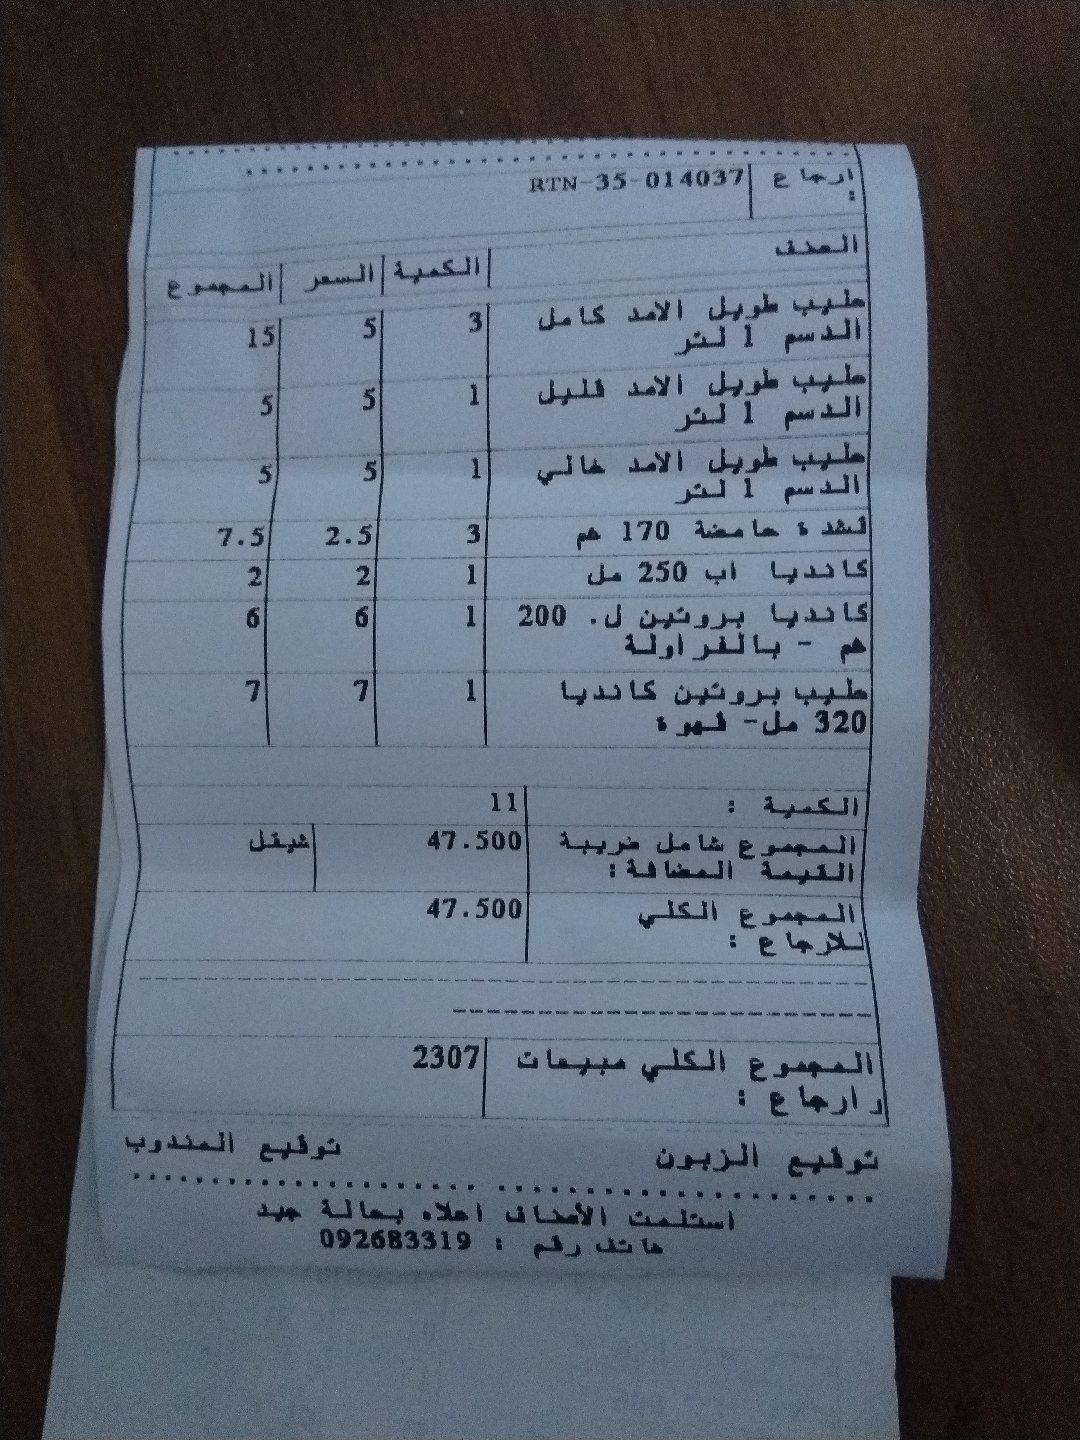 ارجاع RTN-35-014037
:
الصنف الكمية السعر المجموع
حليب طويل الامد كامل 3 5 15
الدسم 1 لتر
حليب طويل الامد قليل 1 5 5
الدسم 1 لتر
حليب طويل الامد خالي 1 5 5
الدسم 1 لتر
قشدة حامضة 170 غم 3 2.5 7.5
كانديا اب 250 مل 1 2 2
كانديا بروتين ل. 200 1 6 6
غم - بالفراولة
حليب بروتين كانديا 1 7 7
320 مل- قهوة
الكمية : 11
المجموع شامل ضريبة 47.500 شيقل
القيمة المضافة:
المجموع الكلي 47.500
للارجاع :
المجموع الكلي مبيعات 2307
وارجاع :
توقيع الزبون توقيع المندوب
استلمت الأصناف اعلاه بحالة جيد
هاتف رقم : 092683319